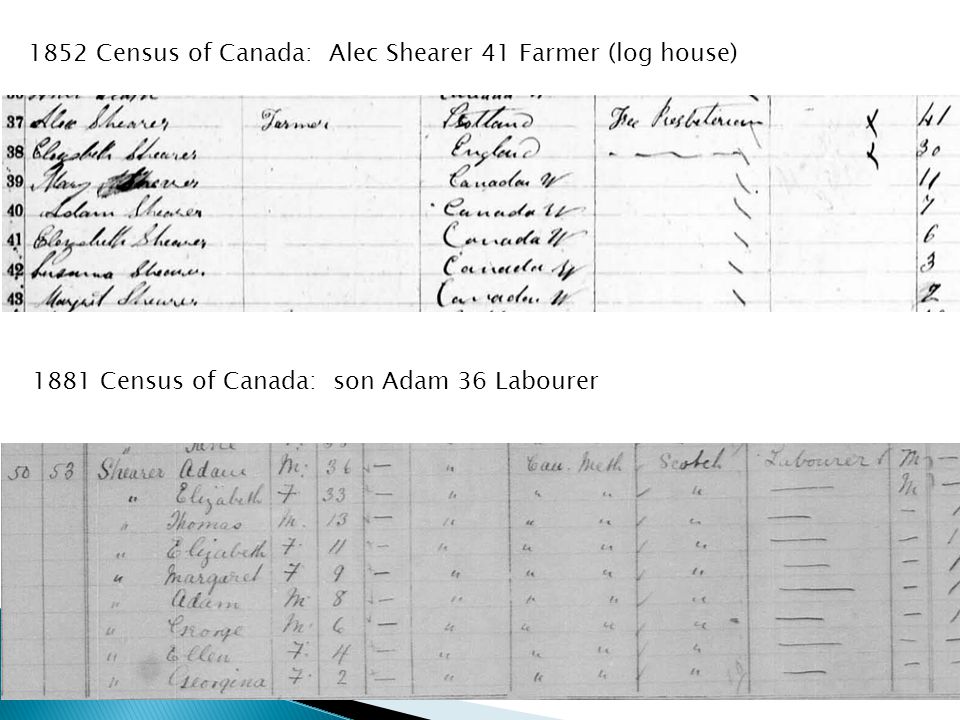 1852 Census of Canada: Alec Shearer 41 Farmer (log house)
37 Alex Shearer Farmer Scotland Free Presbiterian x 41
38 Elezabeth Shearer England x 30
39 Mary Shearer Canada W 11
40 Adam Shearer Canada W 7
41 Elezabeth Shearer Canada W 6
42 Susanna Shearer Canada W 3
43 Margret Shearer Canada W 2
1881 Census of Canada: son Adam 36 Labourer
50 53 Shearer Adam M. 36 — " Can. Meth Scotch Labourer M —
" Elizabeth F 33 — " " " " — M
" Thomas M. 13 — " " " " — — 1
" Elizabeth F. 11 — " " " " — — 1
" Margaret F 9 — " " " " — — 1
" Adam M. 8 — " " " " — — 1
" George M. 6 — " " " " — — 1
" Ellen F. 4 — " " " " — —
" Georgina F. 2 — " " " " — —